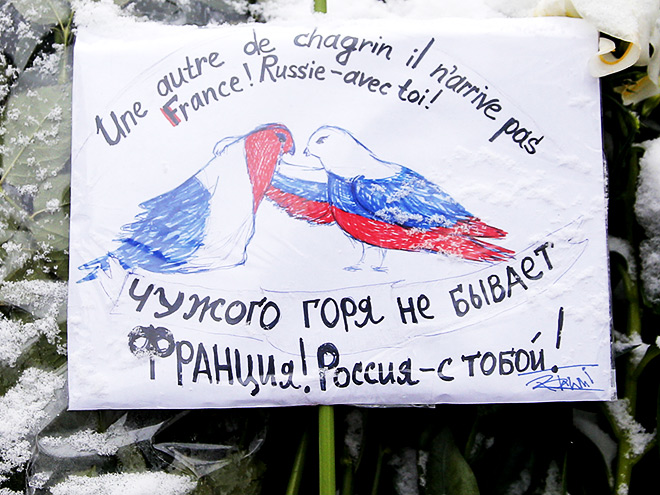 Une autre de chagrin il n'arrive pas
France! Russie-avec toi!
Чужого горя не бывает
Франция! Россия-с тобой!